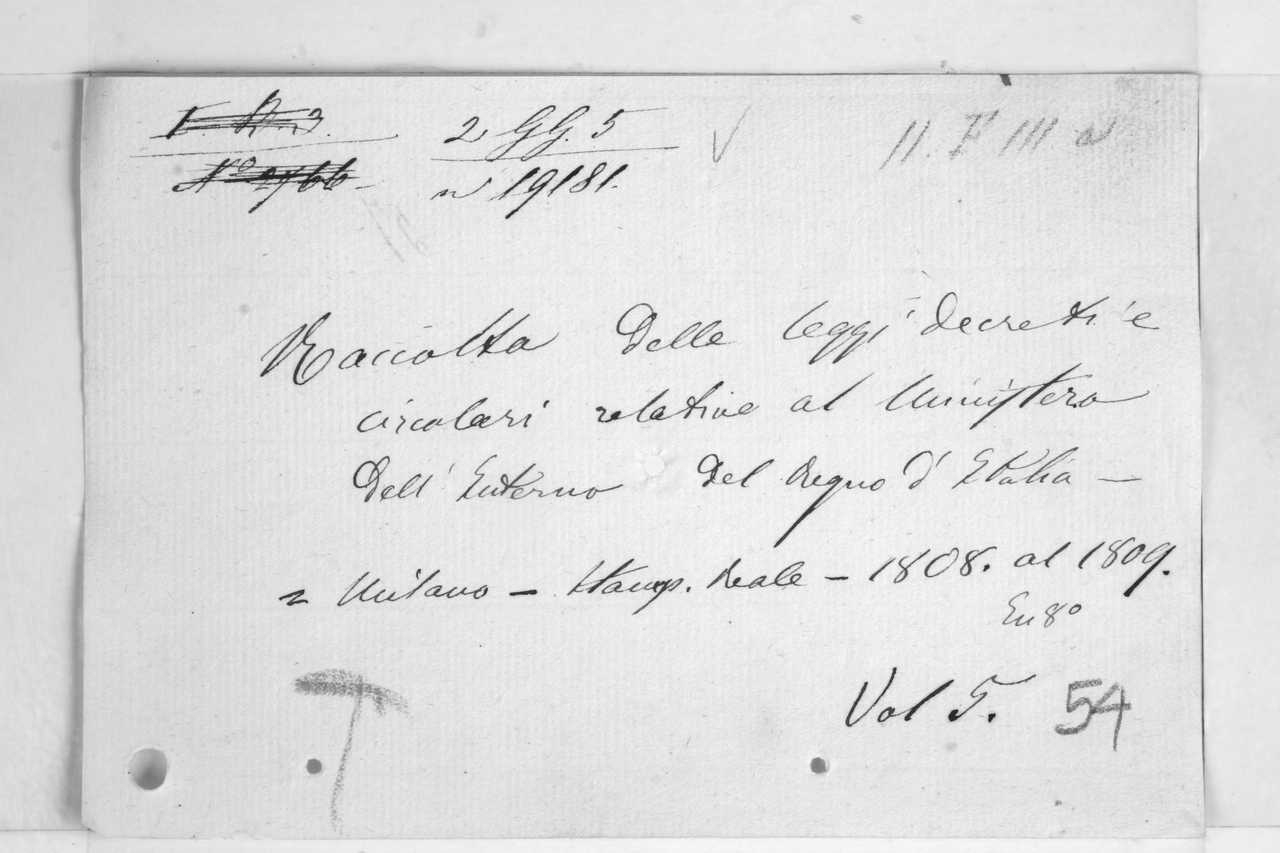 2 GG. 5 V II. F III a
n 19181.
Raccolta Delle leggi decreti e
circolari relative al Ministero
Dell' Interno Del Regno d' Italia —
= Milano — Stamp. Reale — 1808. al 1809.
In 8º
Vol 5. 54